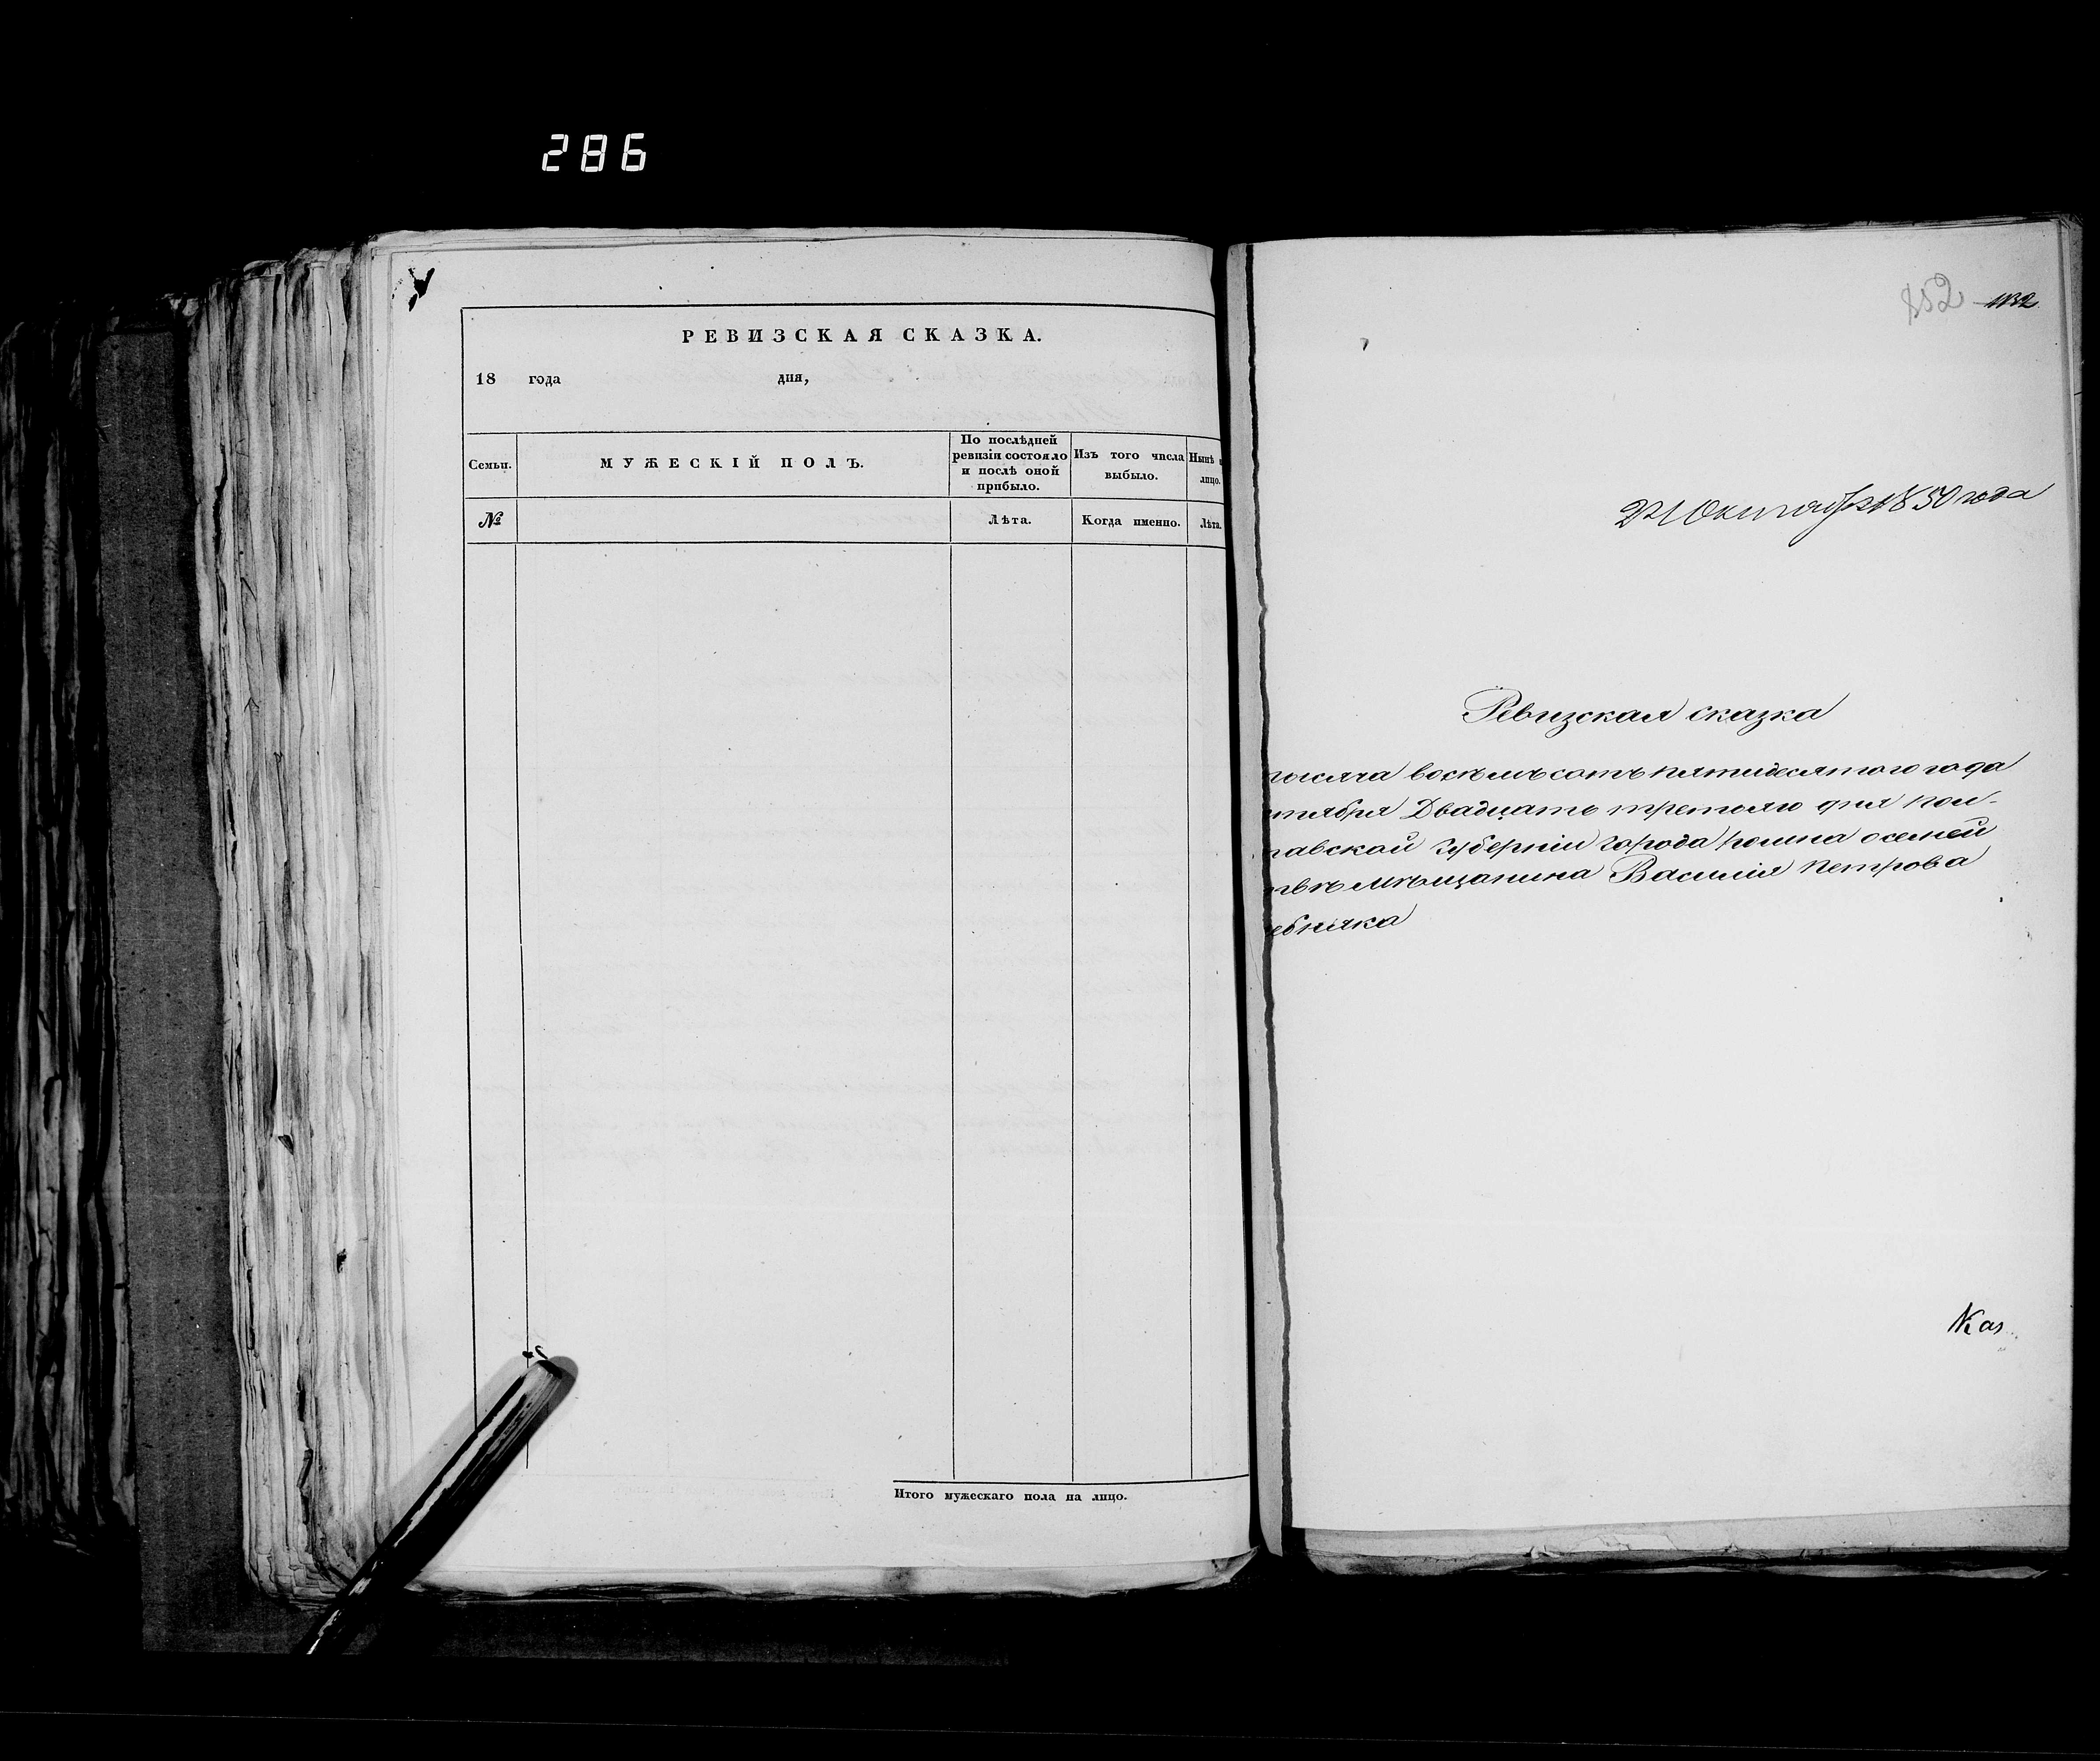 286
РЕВИЗСКАЯ СКАЗКА.
18 года дня,
Семьи.
МУЖЕСКІЙ ПОЛЪ.
По послѣдней ревизіи состояло и послѣ оной прибыло.
Изъ того числа выбыло.
Нынѣ лицо.
№
Лѣта.
Когда именно.
Лѣта.
Итого мужескаго пола на лицо.
852 1132
Октября 1850 года
Ревизская сказка
тысяча восѣмъ сотъ пятидесятого года
ктября Двадцать третьяго дня Пол-
тавской Губерніи города Ромна осемей
твѣ мѣщанина Василія Петрова
ебняка